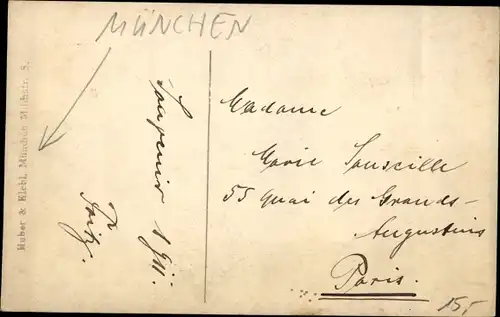 MÜNCHEN
Huber & Klebl, München Milchstr. 5.
Souvenir
Fritz.
Madame
Marie Souscille
55 Quai des Grands-
Augustins
Paris.
15,-